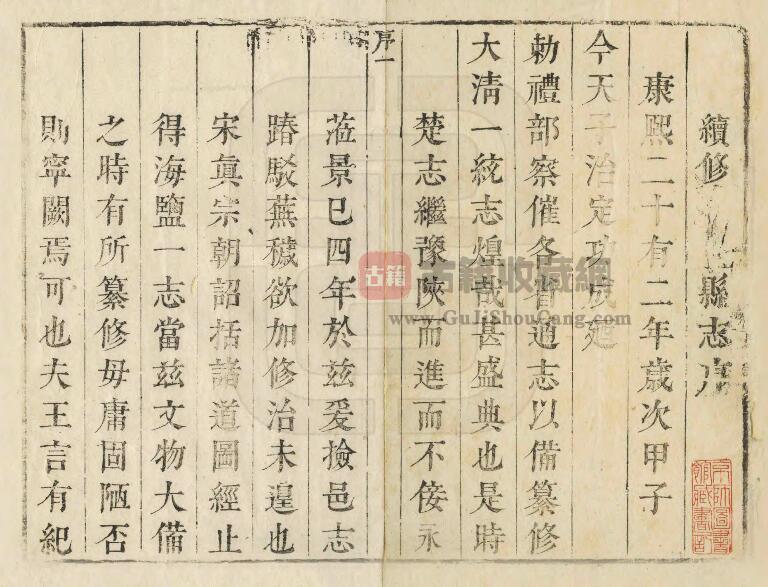 續修 縣志序
康熙二十有二年歲次甲子
今天子治定功成廼
勅禮部察催各省通志以備纂修
大清一統志煌哉甚盛典也是時
楚志繼豫陝而進而不佞永
序一
蒞景已四年於兹爰撿邑志
踳駁蕪穢欲加修治未遑也
宋眞宗朝詔括諸道圖經止
得海鹽一志當兹文物大備
之時有所纂修毋庸固陋否
則寧闕焉可也夫王言有紀
京師圖書館藏書記
古籍
古籍收藏網
www.GuJiShouCang.com